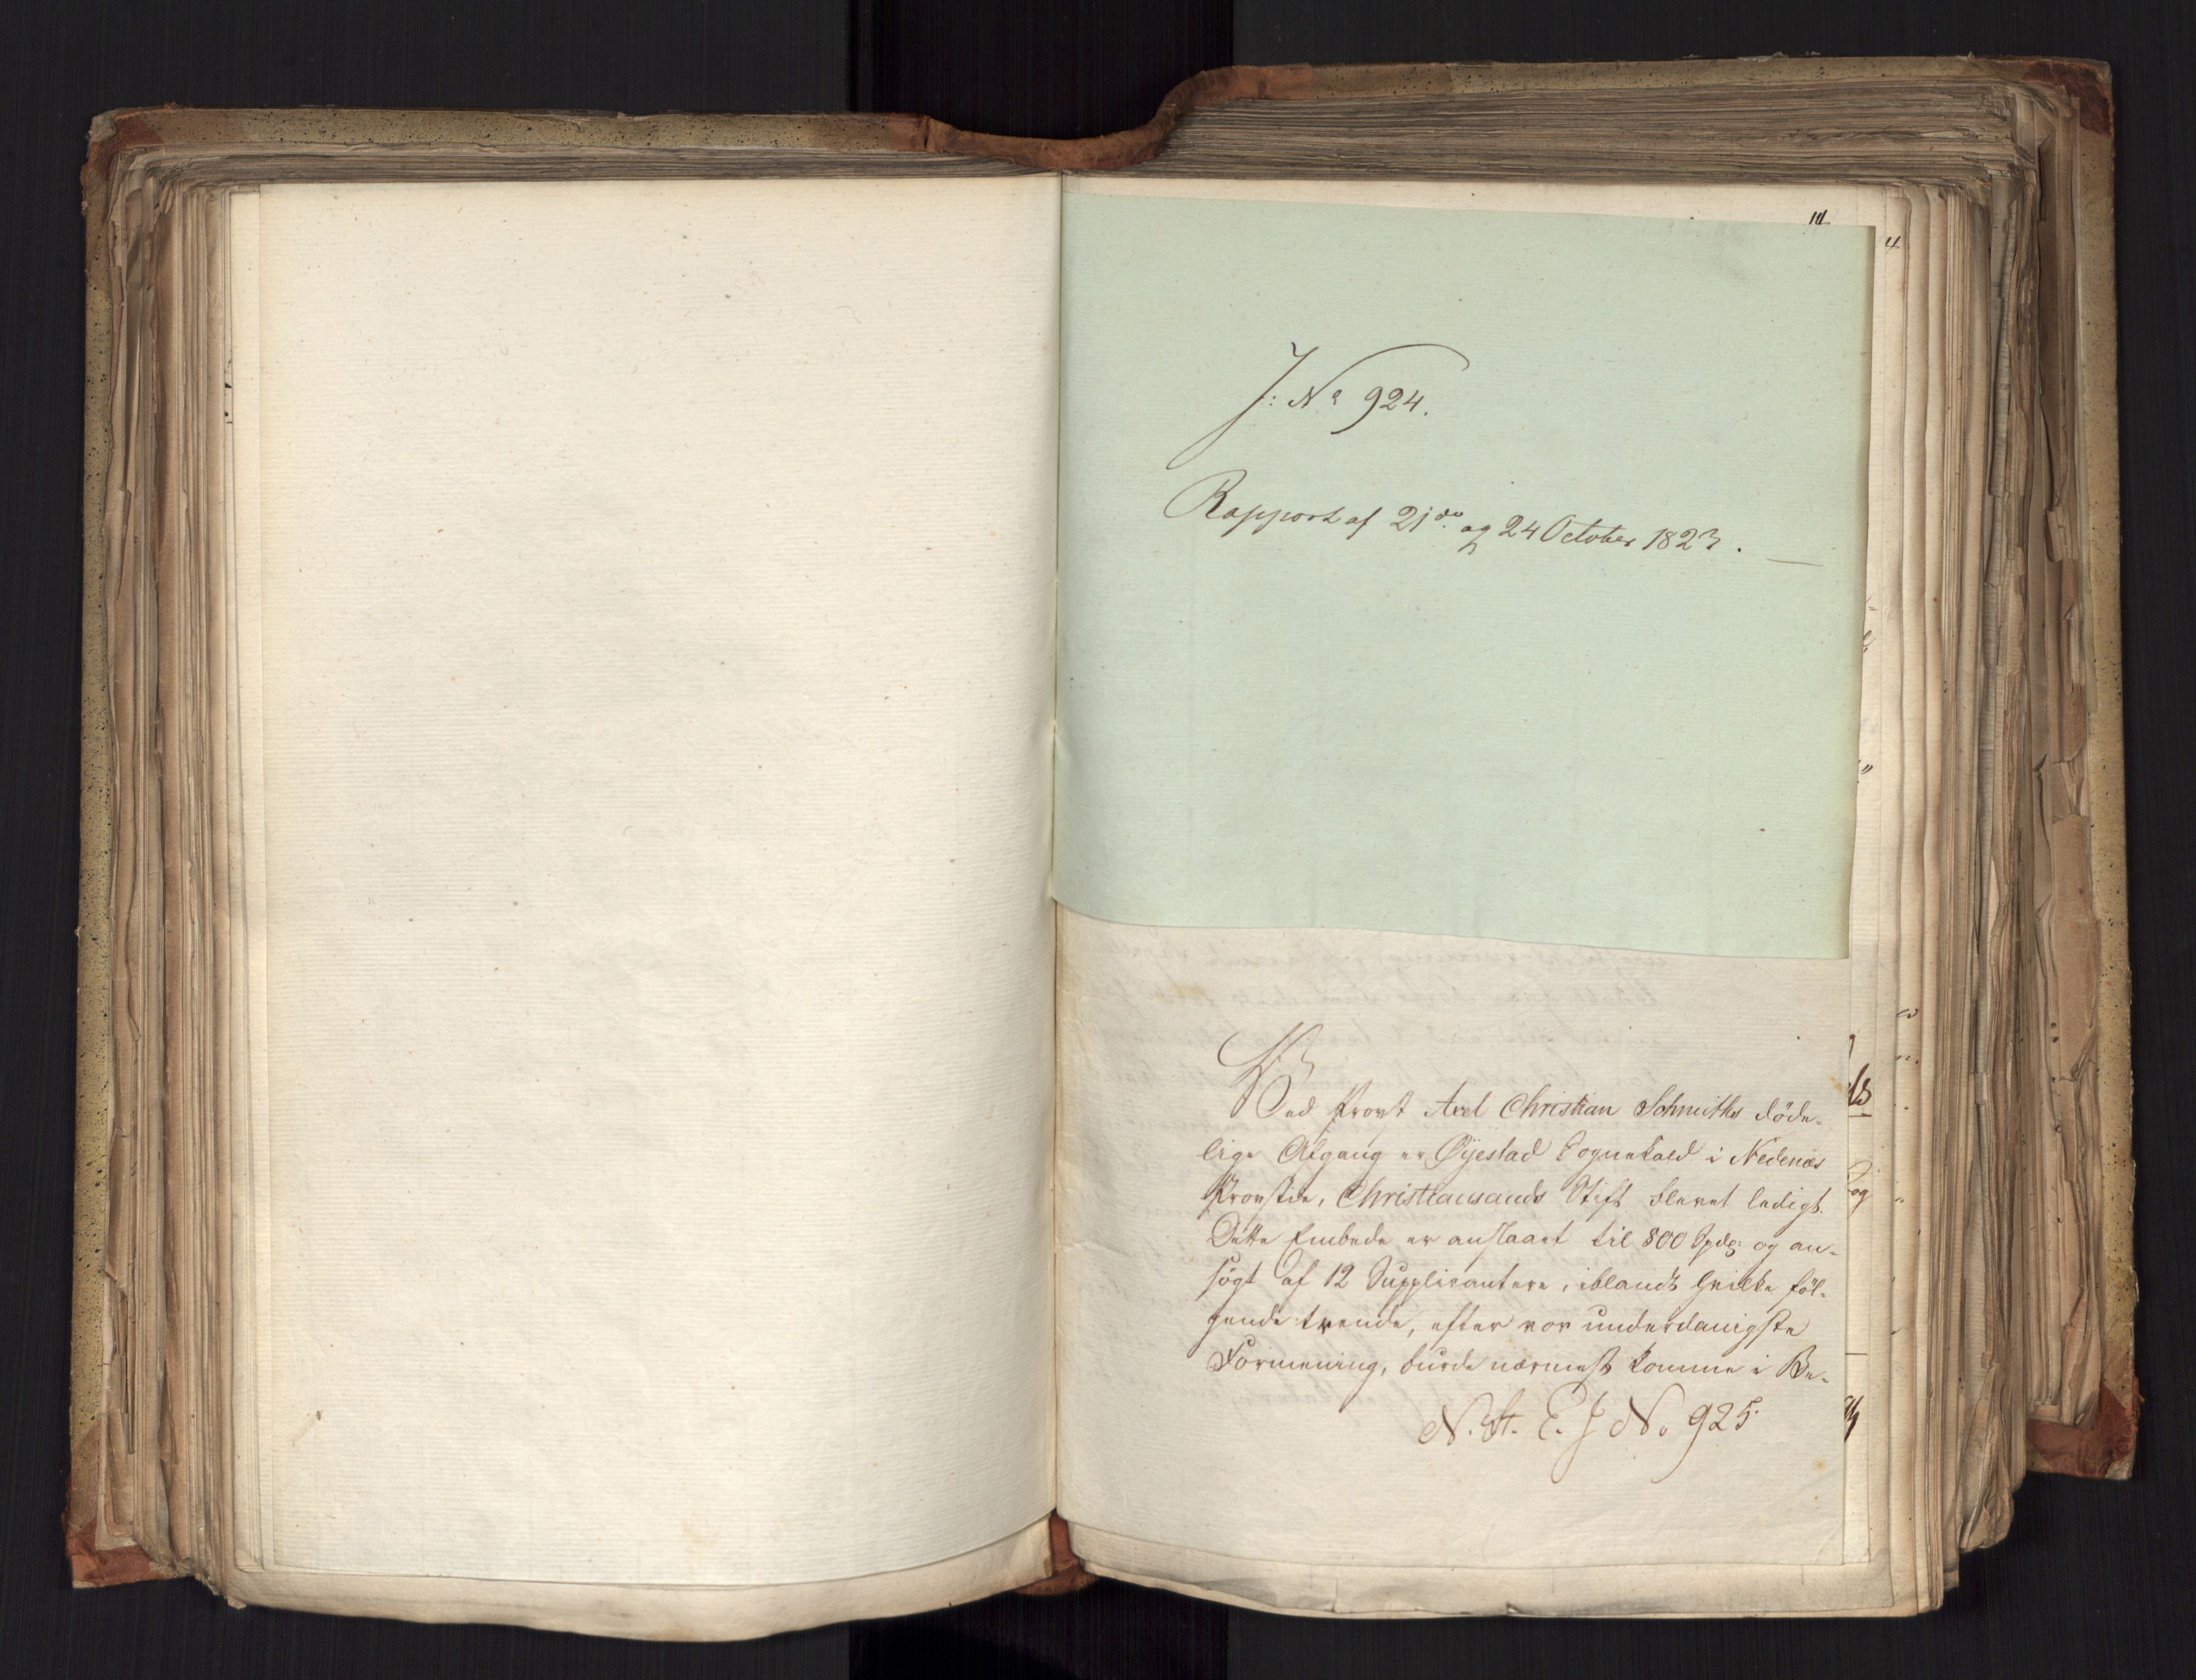 J: No 924.
Rapport af 21de og 24 October 1823.
Ved Provst Axel Christian Schmiths döde-
lige Afgang er Öÿestad Sognekald i Nedenæs
Provstie, Christiansands Stift blevet ledigt.
Dette Embede er anslaaet til 800 Spdr: og an-
søgt af 12 Supplicantere, iblandt hvilke föl-
gende trende, efter vor underdanigste
Formening, burde nærmest komme i Be-
N. St. E. J No 925.